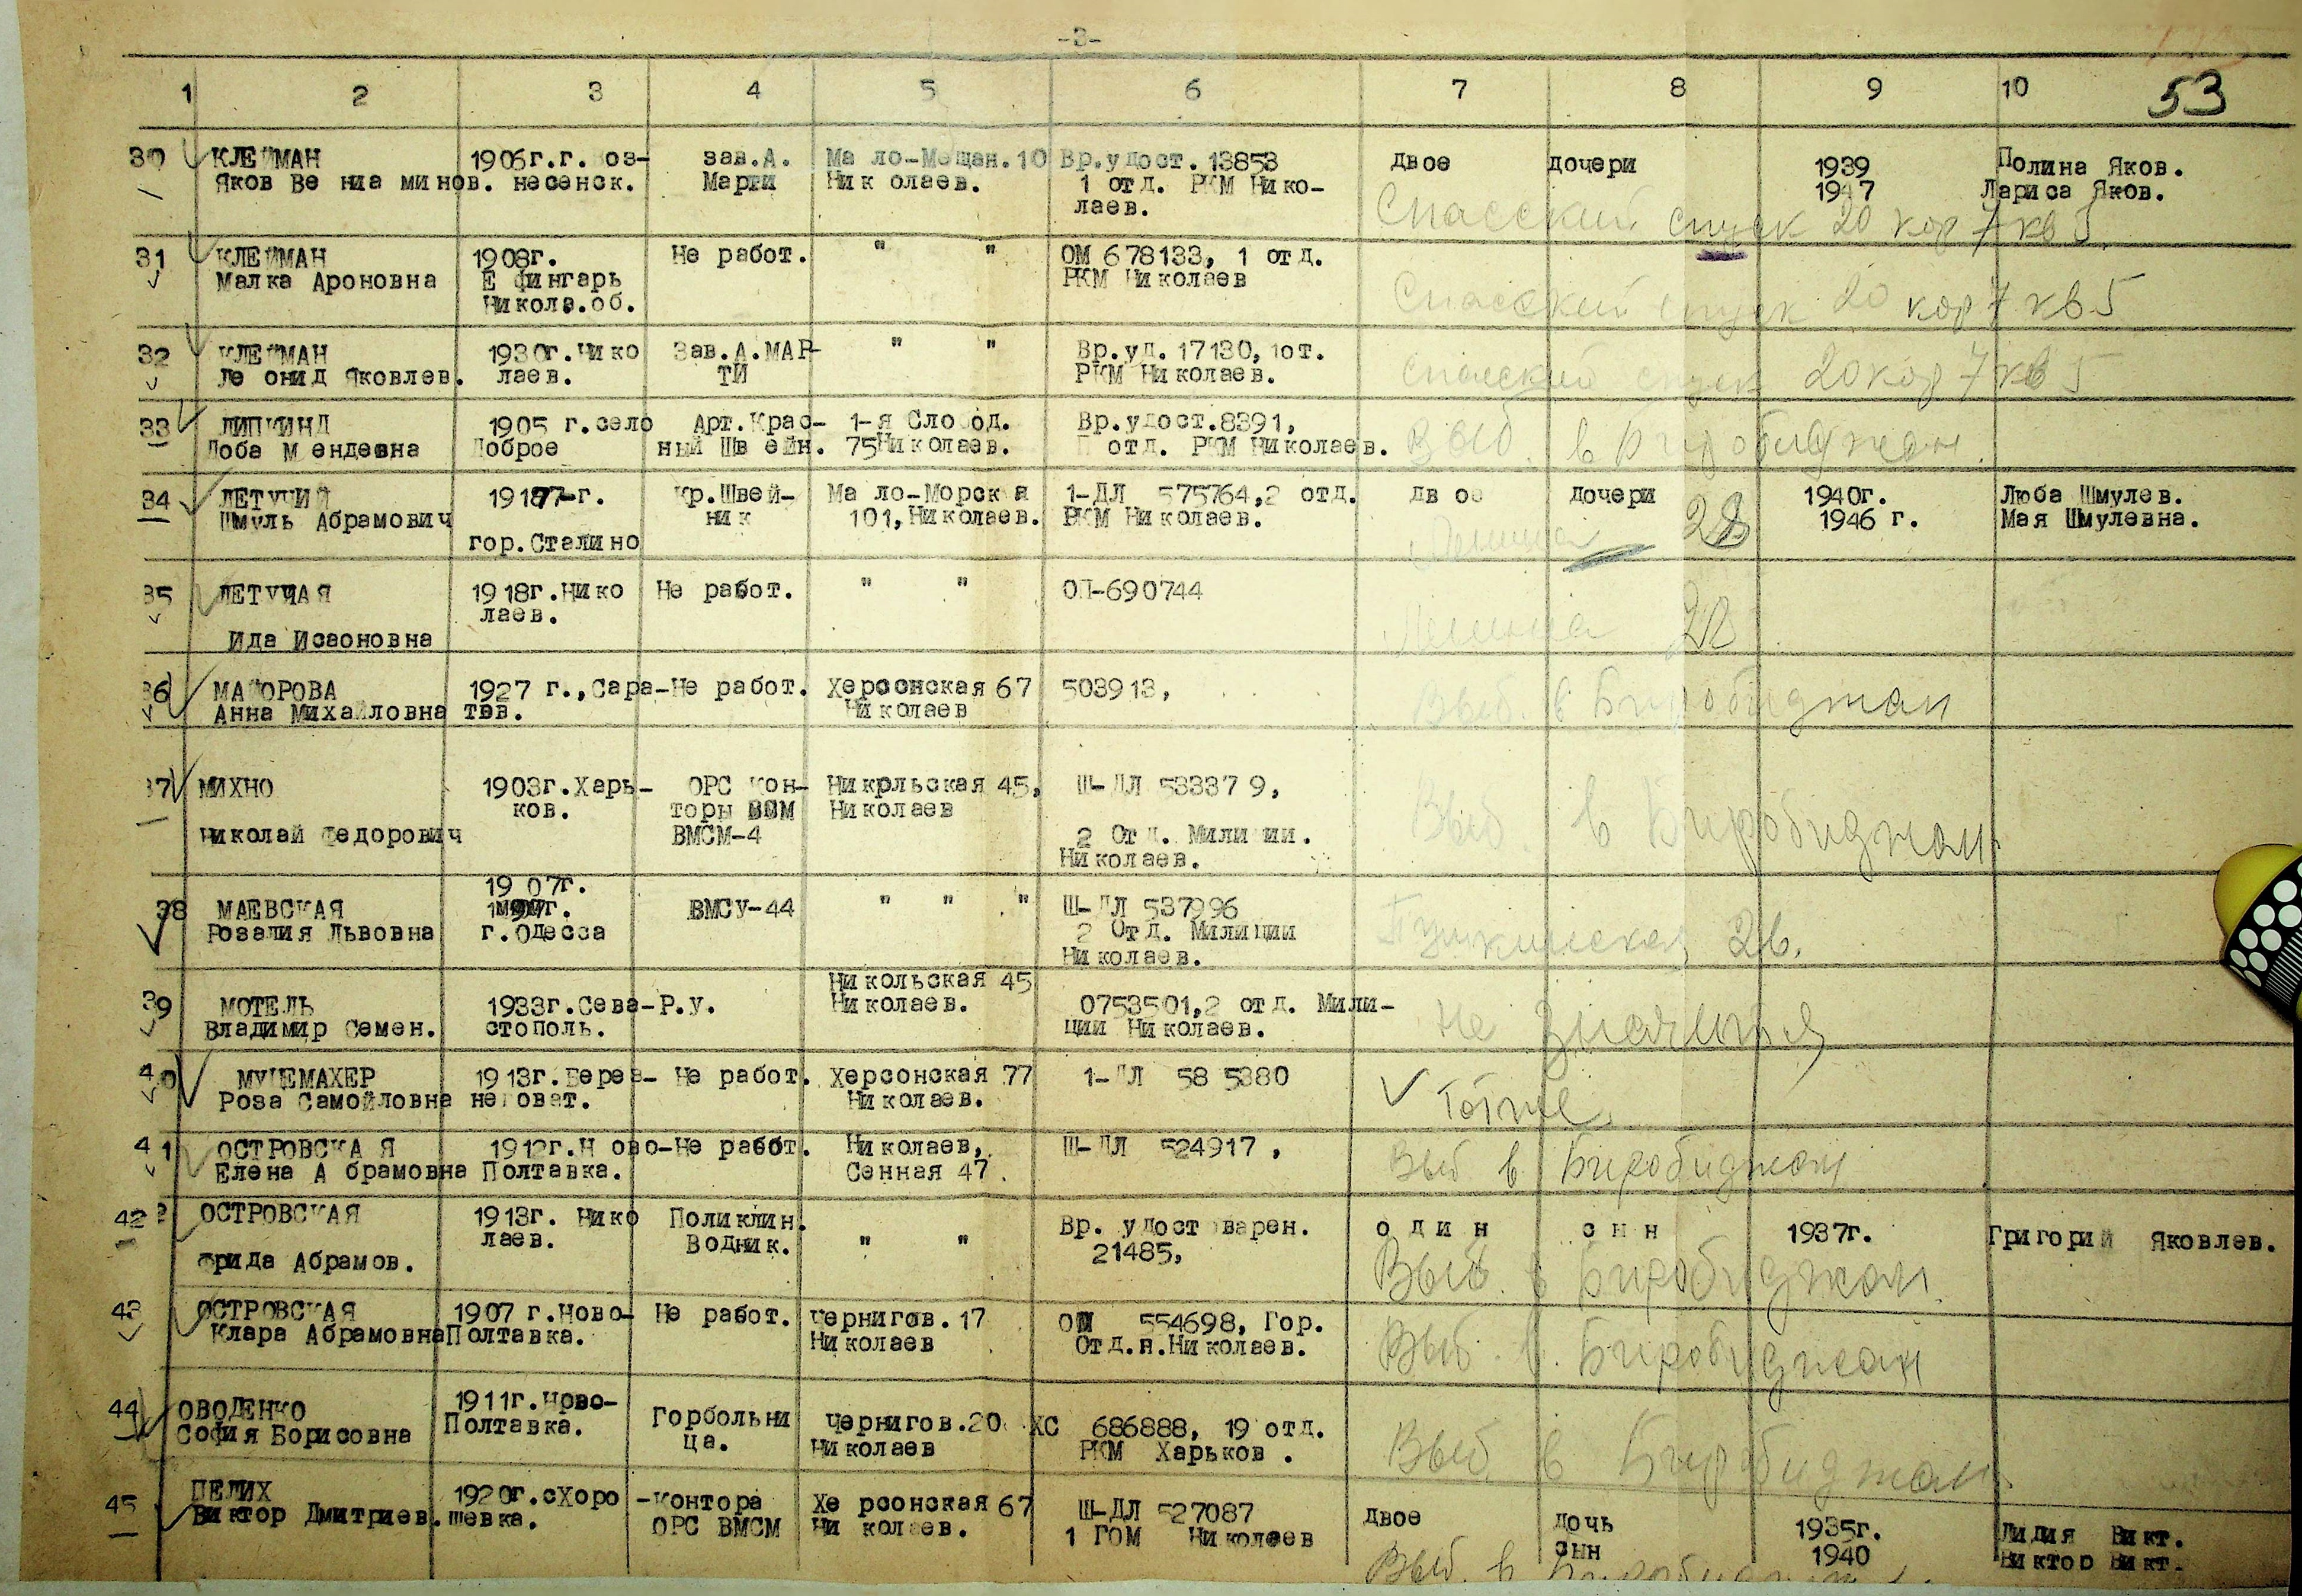 -3-
1 2 3 4 5 6 7 8 9 10 53
30 КЛЕЙМАН 1906г.г. Воз- зав.А. Мало-Мещан.10 Вр.удост.13853 двое дочери 1939 Полина Яков.
Яков Вениаминов. несенск. Марти Николаев. 1 отд. РКМ Нико- 1947 Лариса Яков.
лаев.
Спасский спуск 20 кор 7 кв 5.
31 КЛЕЙМАН 1908г. Не работ. " " ОМ 678133, 1 отд.
Малка Ароновна Е фингарь РКМ Николаев
Никола.об.
Спасский спуск 20 кор 7 кв 5
32 КЛЕЙМАН 1930г.Нико Зав.А.МАР- " " Вр.уд.17130,1от.
Леонид Яковлев. лаев. ТИ РКМ Николаев.
Спасский спуск 20 кор 7 кв 5
33 ЛИПКИНД 1905 г.село Арт.Крас- 1-я Слобод. Вр.удост.8391,
Лоба Мендевна Доброе ный Швейн. 75Николаев. отд. РКМ Николаев.
Выб. в Биробиджан.
34 ЛЕТУЧИЙ г. Кр.Швей- Мало-Морская 1-ДЛ 575764,2 отд. двое дочери 1940г. Люба Шмулев.
Шмуль Абрамович ник 101,Николаев. РКМ Николаев. 1946 г. Мая Шмулевна.
гор.Сталино
Ленина 28
35 ЛЕТУЧАЯ 1918г.Нико Не работ. " " ОП-690744
лаев.
Ида Исаоновна
Ленина 28
36 МАЙОРОВА 1927 г.,Сара- Не работ. Херсонская 67 503913,
Анна Михайловна тов. Николаев
Выб. в Биробиджан
37 МИХНО 1903г.Харь- ОРС кон- Никрльская 45, Ш-ДЛ 533379,
ков. торы ВСМ Николаев
Николай Федорович ВМСМ-4 2 Отд. Милиции.
Николаев.
Выб. в Биробиджан.
1907г.
38 МАЕВСКАЯ г. ВМСУ-44 " " " Ш-ДЛ 537996
Розалия Львовна г.Одесса 2 Отд. Милиции
Николаев.
Пушкинская 2в.
Никольская 45
39 МОТЕЛЬ 1933г.Сева- Р.у. Николаев. 0753501,2 отд. Мили-
Владимир Семен. стополь. ции Николаев.
Не значится
40 МУЧЕМАХЕР 1913г.Берез- Не работ. Херсонская 77 1-ДЛ 585380
Роза Самойловна неговат. Николаев.
41 ОСТРОВСКАЯ 1912г.Ново- Не работ. Николаев, Ш-ДЛ 524917,
Елена Абрамовна Полтавка. Сенная 47.
Выб в Биробиджан
42 ОСТРОВСКАЯ 1913г. Нико Поликлин. Вр. удостоварен. один сын 1937г. Григорий Яковлев.
лаев. Водник. " " 21485,
Фрида Абрамов.
Выб. в Биробиджан.
43 ОСТРОВСКАЯ 1907 г.Ново- Не работ. Чернигов.17 ОМ 554698, Гор.
Клара Абрамовна Полтавка. Николаев Отд.п.Николаев.
Выб. в. Биробиджан
44 ОВОДЕНКО 1911г.Ново- Горбольни Чернигов.20 ХС 686888, 19 отд.
София Борисовна Полтавка. ца. Николаев РКМ Харьков.
Выб. в Биробиджан.
45 ПЕЛИХ 1920г.сХоро -контора Херсонская 67 Ш-ДЛ 527087 двое дочь 1935г. Лидия Викт.
Виктор Дмитриев. шевка. ОРС ВМСМ Николаев. 1 ГОМ Николоев сын 1940 Виктор Викт.
Выб. в Биробиджан.